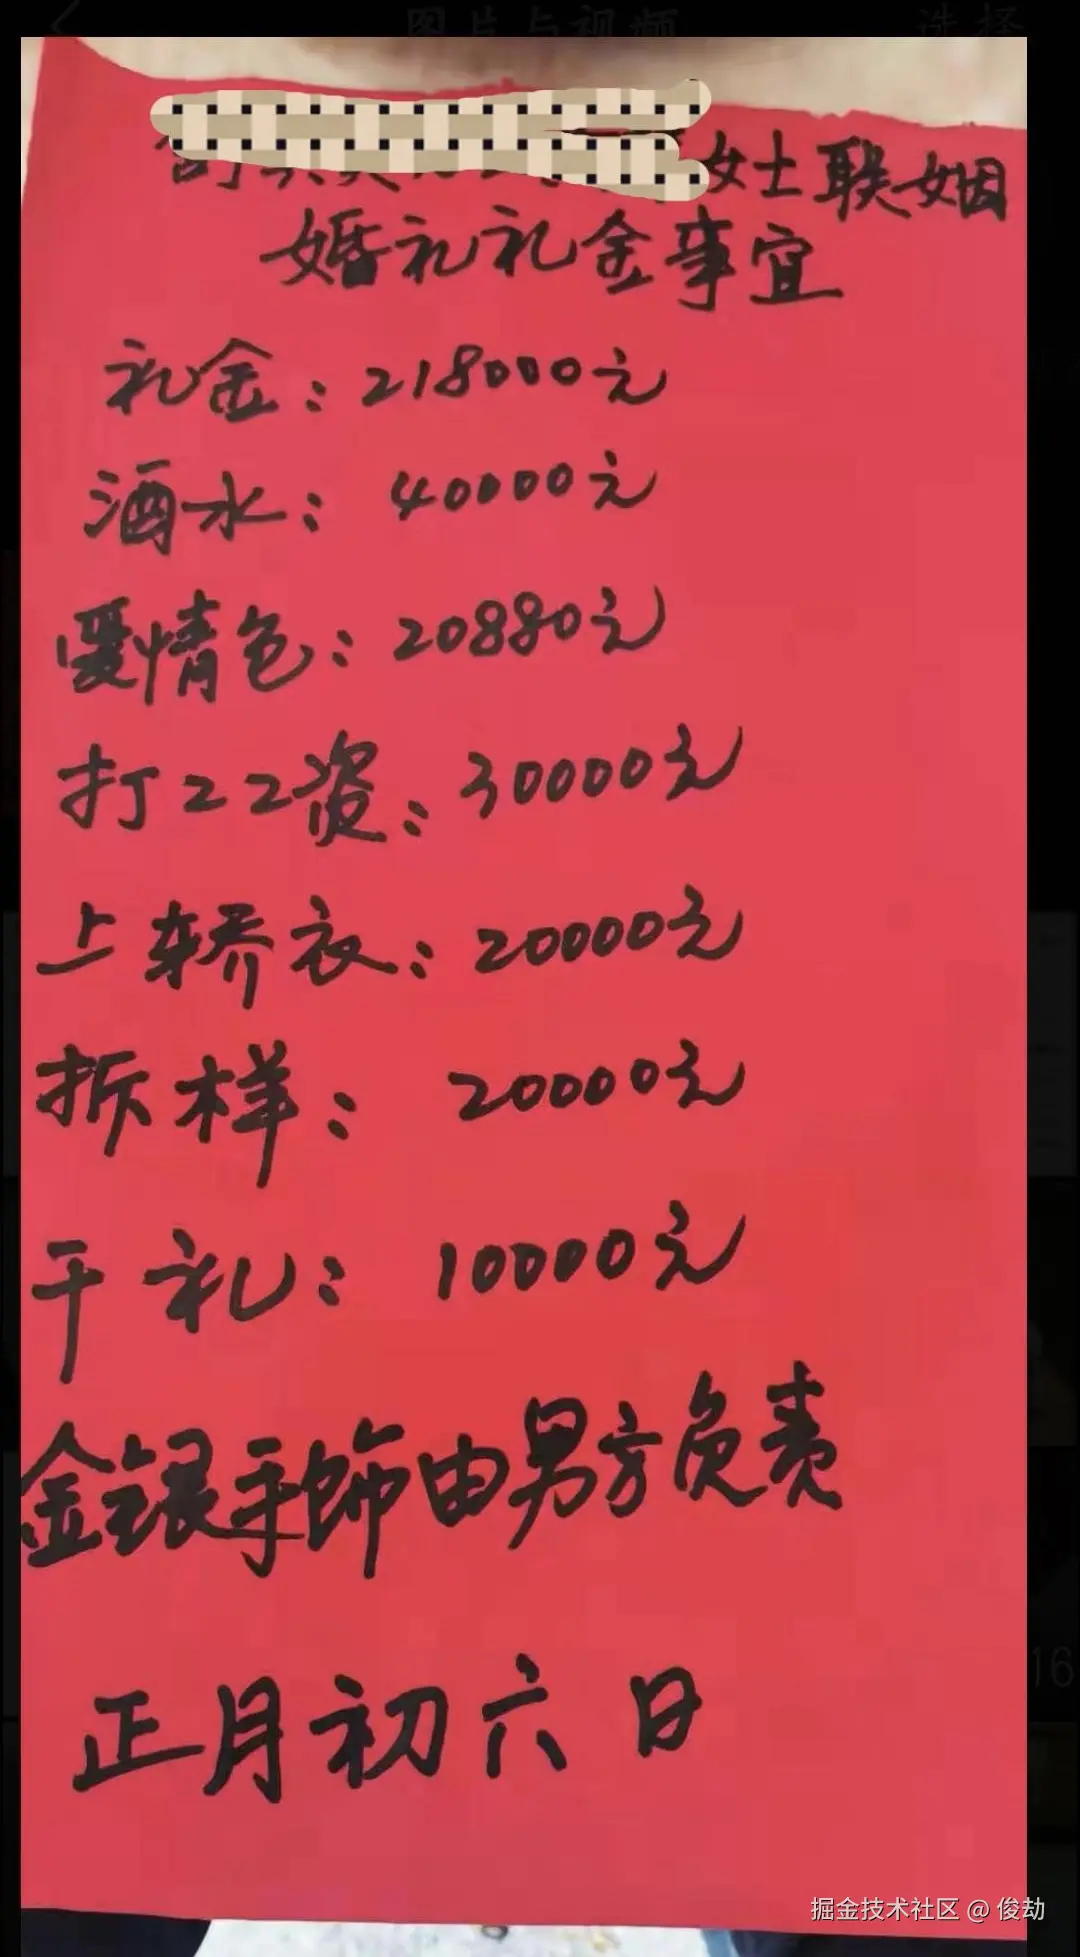 图片与视频
选择
女士联姻
婚礼礼金事宜
礼金：218000元
酒水：40000元
爱情包：20880元
打工工资：30000元
上轿衣：20000元
拆样：20000元
干礼：10000元
金银手饰由男方负责
正月初六日
16
掘金技术社区 @ 俊劫